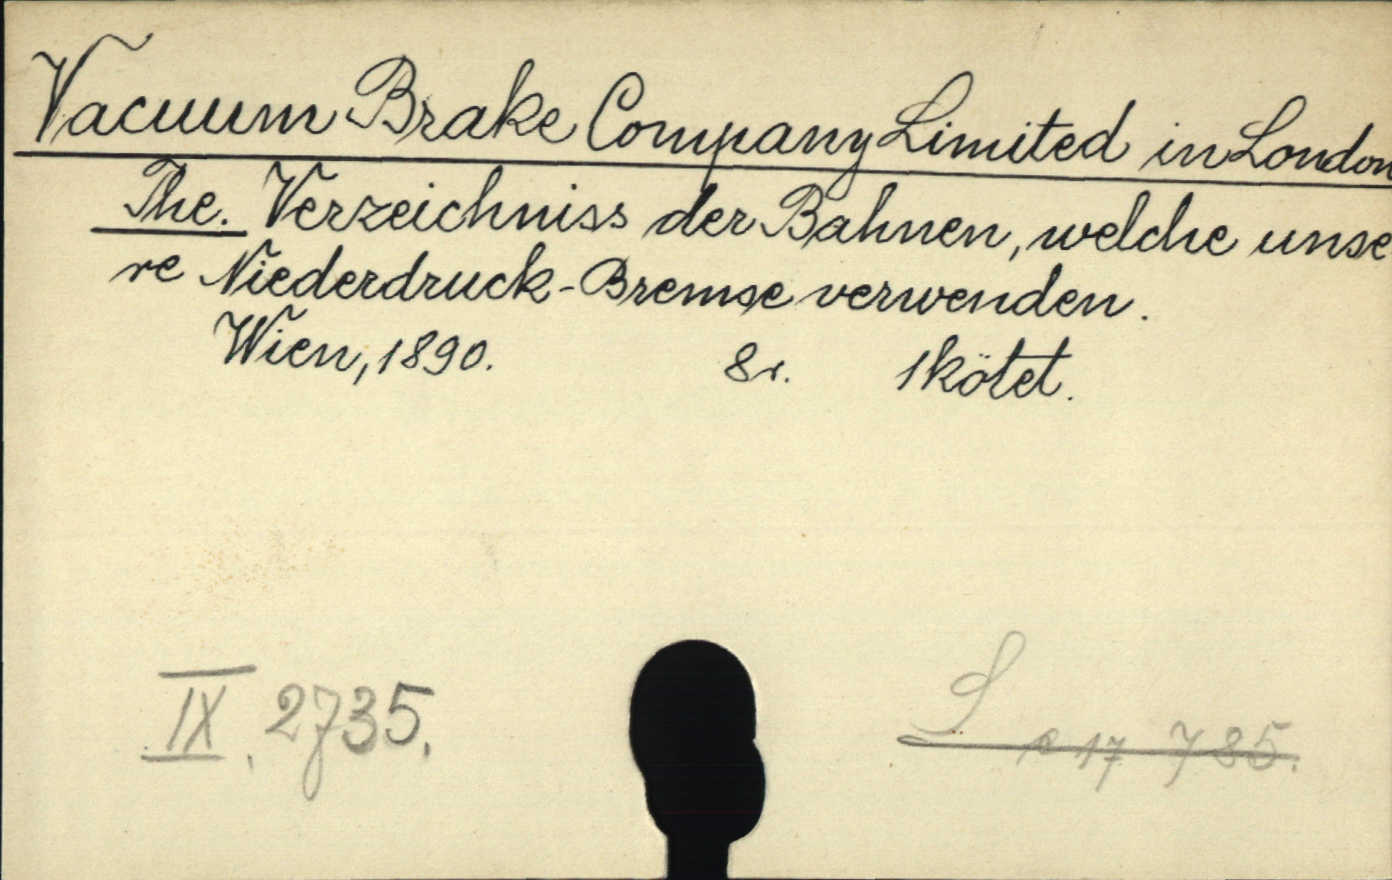 Vacuum Brake Company Limited in London
The. Verzeichniss der Bahnen, welche unse-
re Niederdruck-Bremse verwenden.
Wien, 1890. 8r. 1 kötet.
IX. 2735.